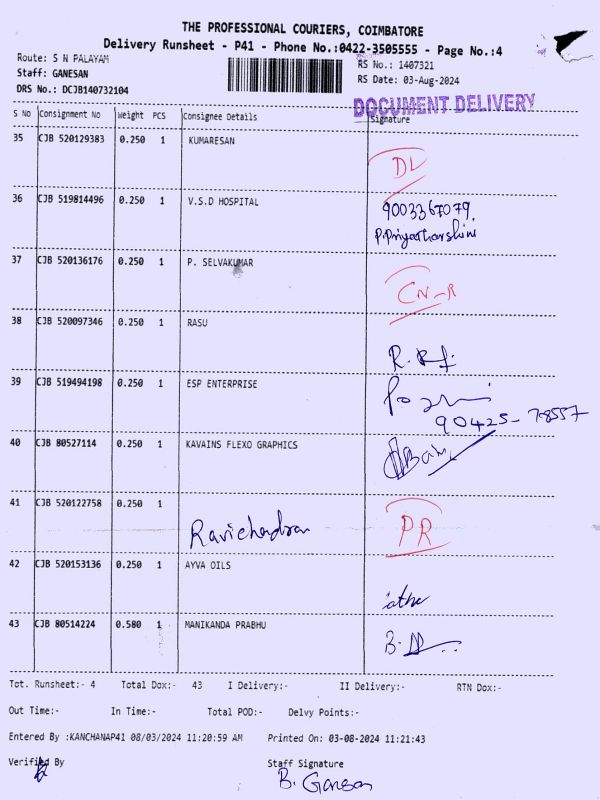 THE PROFESSIONAL COURIERS, COIMBATORE
Delivery Runsheet - P41 - Phone No.:0422-3505555 - Page No.:4
Route: S N PALAYAM
RS No.: 1407321
Staff: GANESAN
RS Date: 03-Aug-2024
DRS No.: DCJB140732104
DOCUMENT DELIVERY
S No Consignment No Weight PCS Consignee Details Signature
35 CJB 520129383 0.250 1 KUMARESAN
DL
36 CJB 519814496 0.250 1 V.S.D HOSPITAL
9003367079.
P.Priyadharshini
37 CJB 520136176 0.250 1 P. SELVAKUMAR
CN-R
38 CJB 520097346 0.250 1 RASU
39 CJB 519494198 0.250 1 ESP ENTERPRISE
90425-78557
40 CJB 80527114 0.250 1 KAVAINS FLEXO GRAPHICS
41 CJB 520122758 0.250 1
Ravichandran PR
42 CJB 520153136 0.250 1 AYVA OILS
43 CJB 80514224 0.580 1 MANIKANDA PRABHU
Tot. Runsheet:- 4 Total Dox:- 43 I Delivery:- II Delivery:- RTN Dox:-
Out Time:- In Time:- Total POD:- Delvy Points:-
Entered By :KANCHANAP41 08/03/2024 11:20:59 AM Printed On: 03-08-2024 11:21:43
Verified By Staff Signature
B. Ganesan